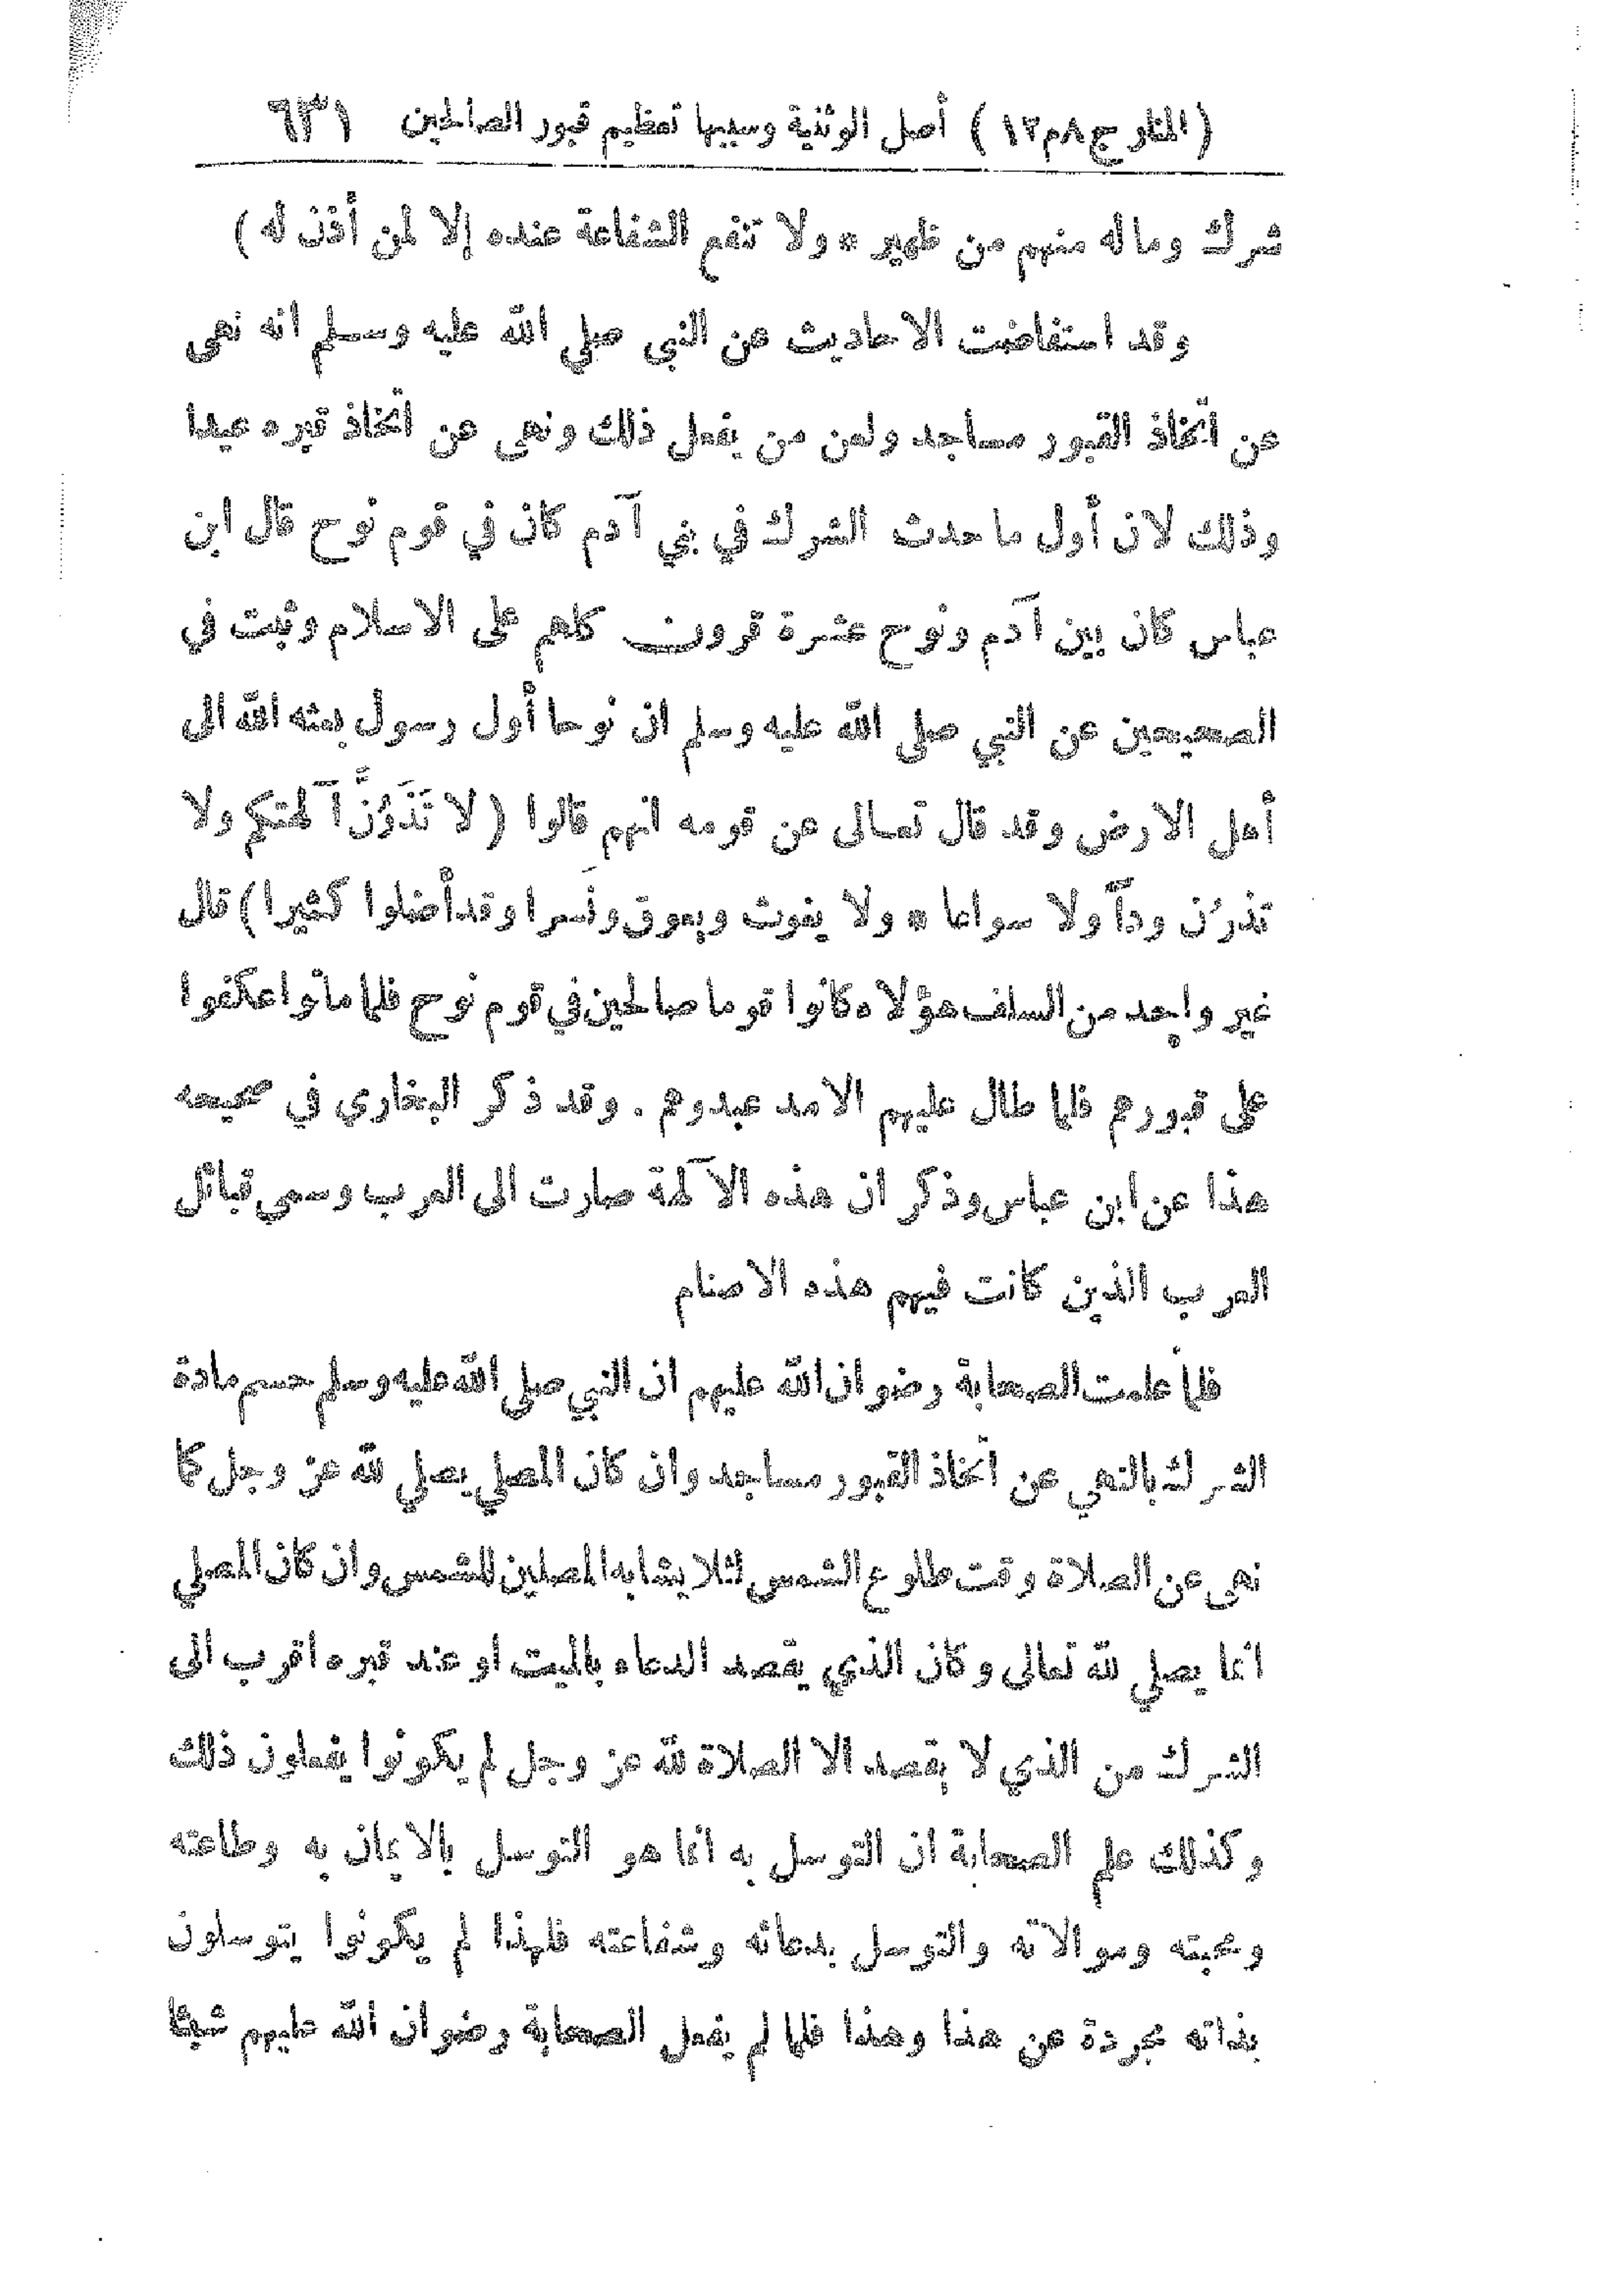 (المنار ج٨م١٢) أصل الوثنية وسببها تعظيم قبور الصالحين ٦٣١
شرك وماله منهم من ظهير * ولا تنفع الشفاعة عنده إلا لمن أذن له )
وقد استفاضت الاحاديث عن النبي صلى الله عليه وسلم انه نهى
عن اتخاذ القبور مساجد ولعن من يفعل ذلك ونهى عن اتخاذ قبره عيدا
وذلك لان أول ما حدث الشرك في بني آدم كان في قوم نوح قال ابن
عباس كان بين آدم ونوح عشرة قرون كلهم على الاسلام وثبت في
الصحيحين عن النبي صلى الله عليه وسلم ان نوحا أول رسول بعثه الله الى
أهل الارض وقد قال تعالى عن قومه انهم قالوا ( لا تَذَرُنَّ آلهتكم ولا
تذرُن ودّاً ولا سواعا * ولا يغوث ويعوق ونَسرا وقد أضلوا كثيرا ) قال
غير واحد من السلف هؤلاء كانوا قوما صالحين في قوم نوح فلما ماتوا عكفوا
على قبورهم فلما طال عليهم الامد عبدوهم . وقد ذكر البخاري في صحيحه
هذا عن ابن عباس وذكر ان هذه الآلهة صارت الى العرب وسمى قبائل
العرب الذين كانت فيهم هذه الاصنام
فلما علمت الصحابة رضوان الله عليهم ان النبي صلى الله عليه وسلم حسم مادة
الشرك بالنهي عن اتخاذ القبور مساجد وان كان المصلي يصلي لله عز وجل كما
نهى عن الصلاة وقت طلوع الشمس لئلا يشابه المصلين للشمس وان كان المصلي
انما يصلي لله تعالى وكان الذي يقصد الدعاء بالميت او عند قبره اقرب الى
الشرك من الذي لا يقصد الا الصلاة لله عز وجل لم يكونوا يفعلون ذلك
وكذلك علم الصحابة ان التوسل به انما هو التوسل بالايمان به وطاعته
ومحبته وموالاته والتوسل بدعائه وشفاعته فلهذا لم يكونوا يتوسلون
بذاته مجردة عن هذا وهذا فلما لم يفعل الصحابة رضوان الله عليهم شيئا